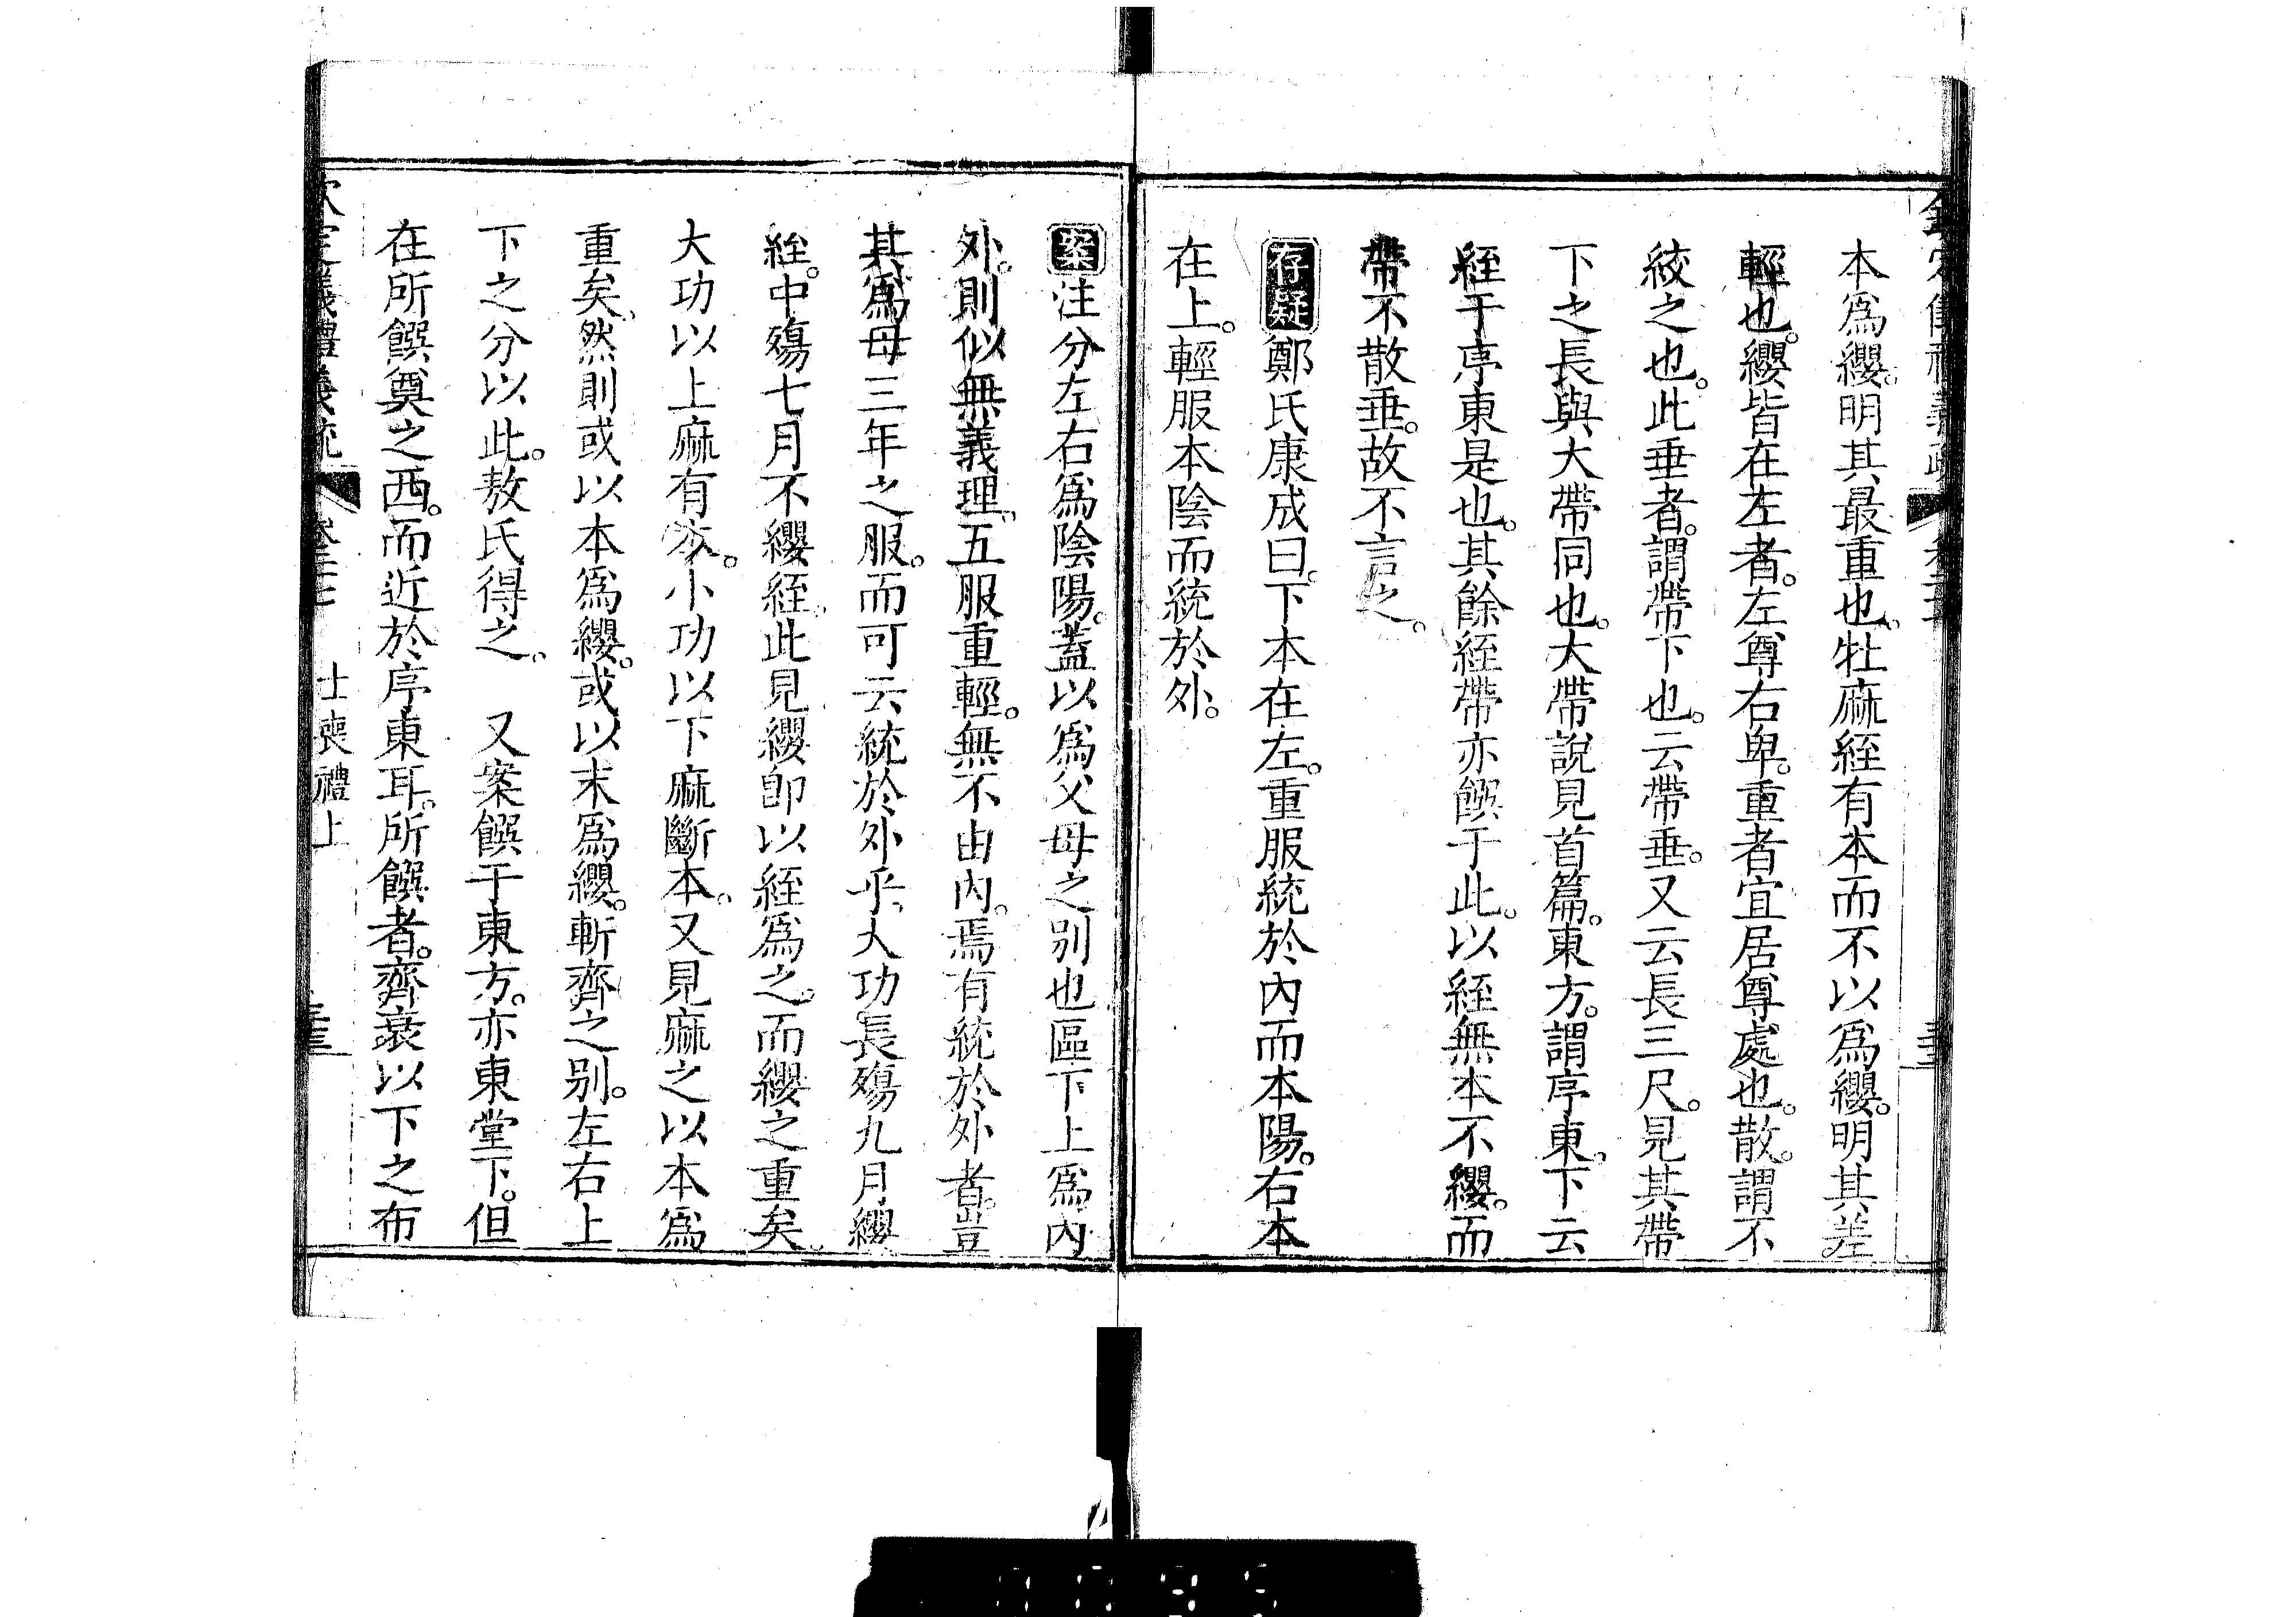 本爲纓。明其最重也。牡麻絰有本而不以爲纓。明其差
輕也。纓皆在左者。左尊右卑。重者宜居尊處也。散。謂不
絞之也。此垂者。謂帶下也。云帶垂。又云長三尺。見其帶
下之長與大帶同也。大帶說見首篇。東方。謂序東。下云
絰于序東是也。其餘絰帶亦饌于此。以絰無本不纓。而
帶不散垂。故不言之。
存疑鄭氏康成曰。下本在左。重服統於內而本陽。右本
在上。輕服本陰而統於外。
案注分左右爲陰陽。蓋以爲父母之別也區下上爲內
外。則似無義理。五服重輕。無不由內。焉有統於外者。豈
其爲母三年之服。而可云統於外乎。大功。長殤九月纓
絰。中殤七月不纓絰。此見纓卽以絰爲之。而纓之重矣。
大功以上麻有本。小功以下麻斷本。又見麻之以本爲
重矣。然則或以本爲纓。或以末爲纓。斬齊之別。左右上
下之分以此。敖氏得之。 又案饌于東方。亦東堂下。但
在所饌奠之西。而近於序東耳。所饌者。齊衰以下之布
士喪禮上